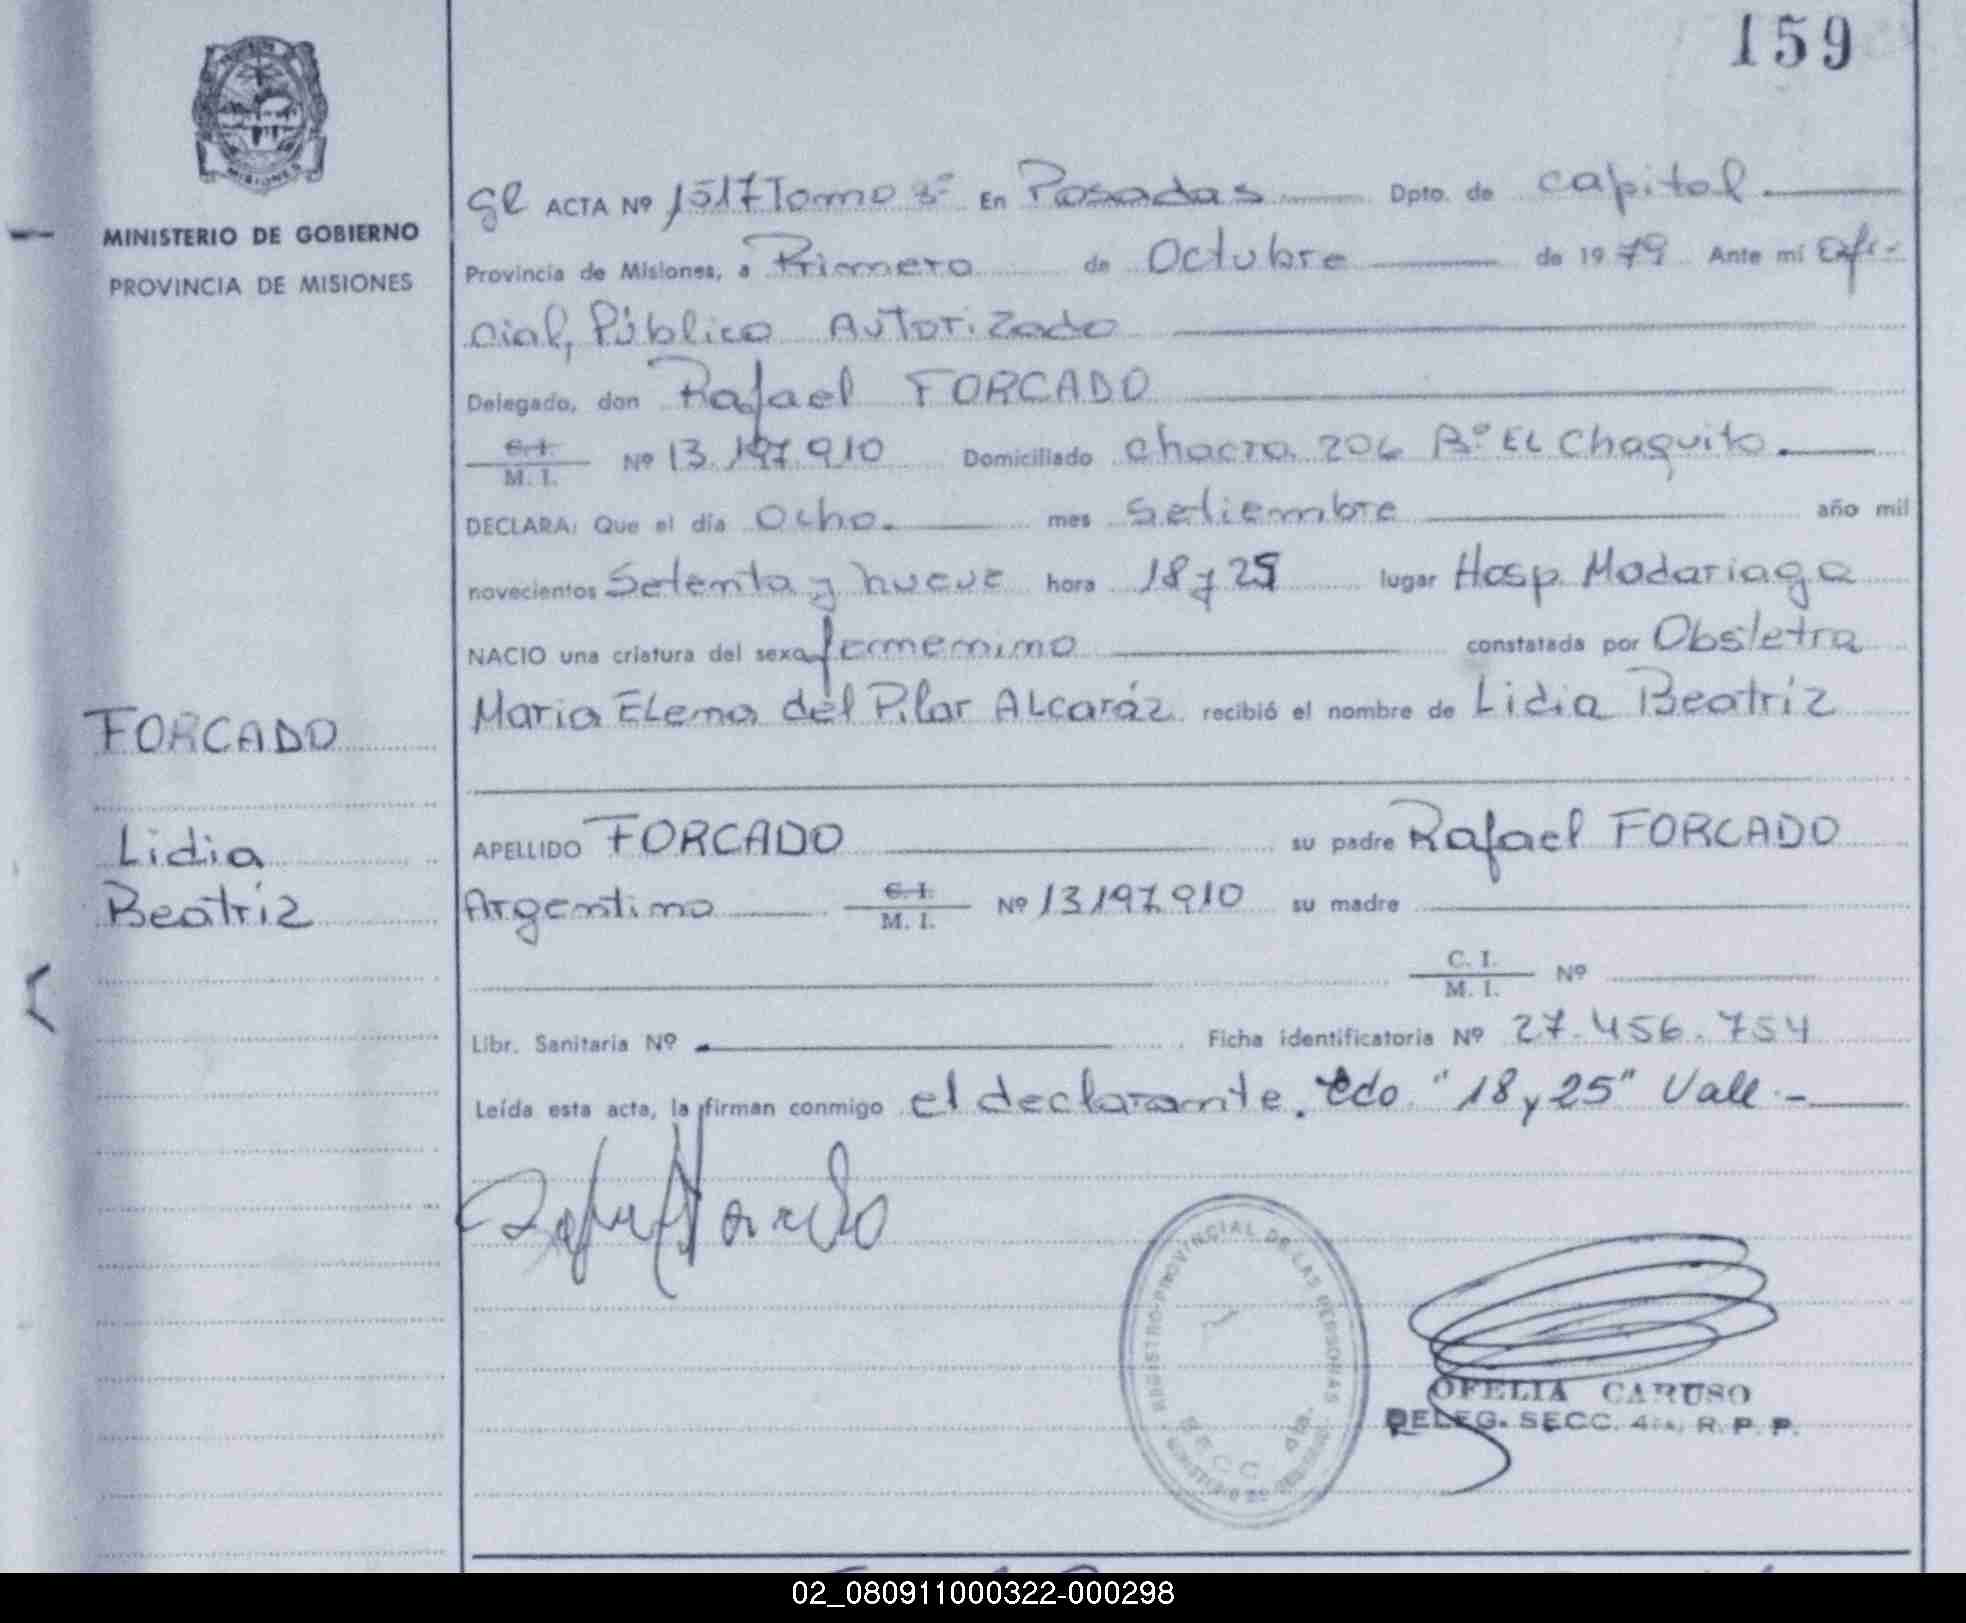 159
MISIONES
MINISTERIO DE GOBIERNO
PROVINCIA DE MISIONES
FORCADO
Lidia
Beatríz
ACTA Nº 1517 Tomo 3º En Posadas Dpto. de Capital
Provincia de Misiones, a Primero de Octubre de 1979 Ante mí Ofi-
cial, Público Autorizado
Delegado, don Rafael FORCADO
C. I.
M. I. Nº 13.197.910 Domiciliado chacra 206 Bº EL Chaquito.
DECLARA: Que el día Ocho. mes Setiembre año mil
novecientos Setenta y nueve hora 18 y 25 lugar Hosp. Madariaga
NACIO una criatura del sexo femenino constatada por Obstetra
Maria ELena del Pilar ALcaráz recibió el nombre de Lidia Beatríz
APELLIDO FORCADO su padre Rafael FORCADO
Argentino C. I.
M. I. Nº 13.197.910 su madre
C. I.
M. I. Nº
Libr. Sanitaria Nº Ficha identificatoria Nº 27.456.754
Leída esta acta, la firman conmigo el declarante. Edo "18 y 25" Vale.-
REGISTRO PROVINCIAL DE LAS PERSONAS
SECC. 4ta.
OFELIA CARUSO
DELEG. SECC. 4ta, R. P. P.
02_080911000322-000298